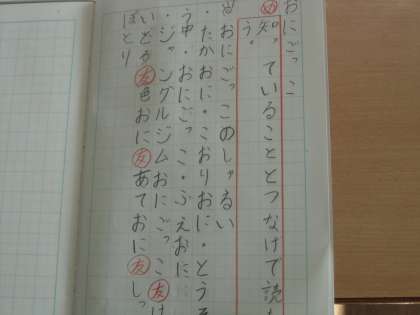 おにごっこ
め知っていることとつなげて読も
う。
おにごっこのしゅるい
・たかおに・こおりおに・とうそ
う中・おにごっこ・ふえおに
・ジャングルジムおにごっこ友け
いどろ友色おに友あておに友しっ
ぽとり